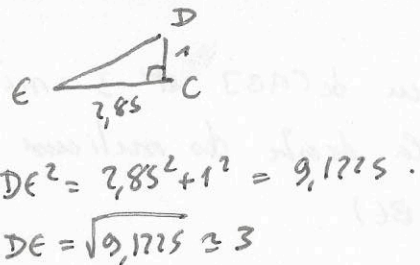 D
1
E C
2,85
DE² = 2,85² + 1² = 9,1225.
DE = √9,1225 ≃ 3